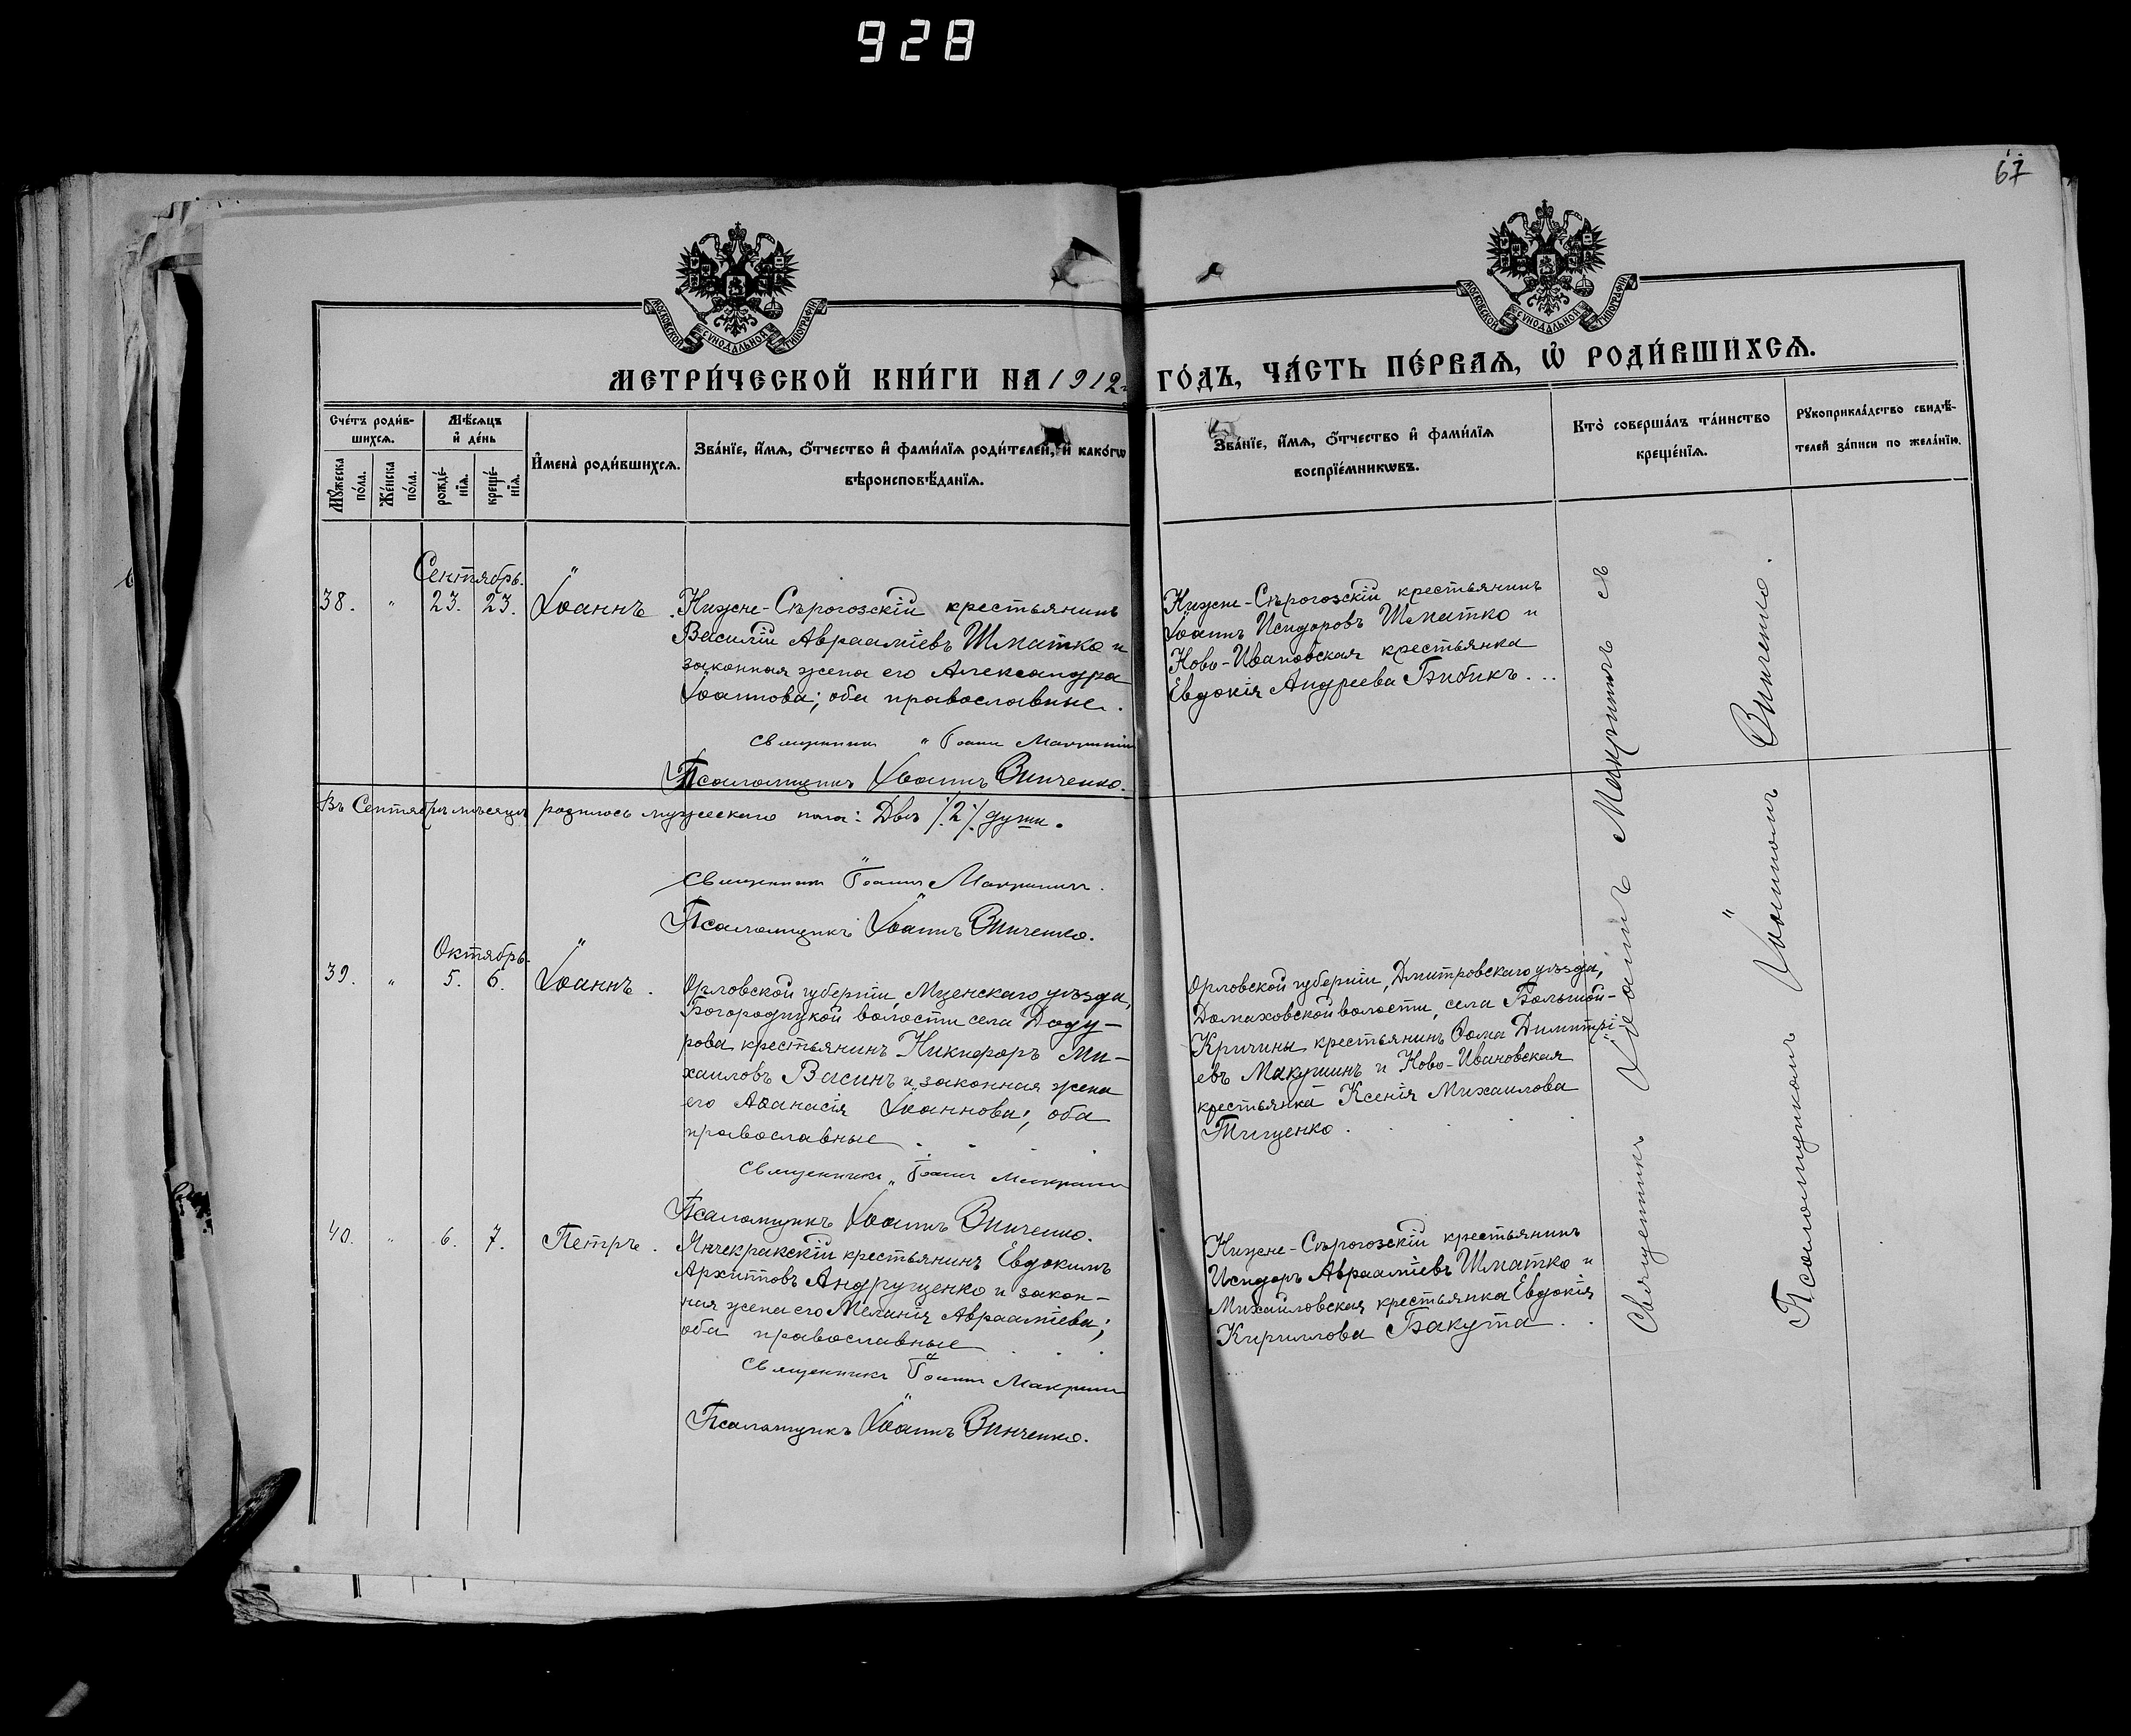 928
67
МОСКОВСКОЙ СУНОДАЛЬНОЙ ТИПОГРАФІИ
МОСКОВСКОЙ СУНОДАЛЬНОЙ ТИПОГРАФІИ
МЕТРИ́ЧЕСКОЙ КНИ́ГИ НА 1912 г. ГО́ДЪ, ЧА́СТЬ ПЕ́РВАѦ, Ѡ҆ РОДИ́ВШИХСѦ.
Сче́тъ роди́в-
шихсѧ.
Мꙋ́жеска по́ла.
Же́нска по́ла.
Мѣ́сѧцъ
и҆ де́нь
рожде́-
нїѧ.
креще́-
нїѧ.
И҆мена̀ роди́вшихсѧ.
Зва́нїе, и҆́мѧ, ѻ҆́тчество и҆ фами́лїѧ роди́телей, и҆ како́гѡ
вѣроисповѣ́данїѧ.
Зва́нїе, и҆́мѧ, ѻ҆́тчество и҆ фами́лїѧ
воспрїе́мникѡвъ.
Кто̀ соверша́лъ та́инство
креще́нїѧ.
Рꙋкоприкла́дство свидѣ́-
телей за́писи по жела́нїю.
Сентябрь.
38. " 23. 23. Іоаннъ.
Нижне-Сѣрогозскій крестьянинъ
Василій Авраамiевъ Шматко и
законная жена его Александра
Іоаннова; оба православные.
Священникъ Іоаннъ Макрининъ
Псаломщикъ Іоаннъ Винченко.
Нижне-Сѣрогозскій крестьянинъ
Іоаннъ Исидоровъ Шматко и
Ново-Ивановская крестьянка
Евдокія Андреева Бибикъ...
Въ Сентябрѣ мѣсяцѣ родилось мужескаго пола: Двѣ ·/.2·/. души.
Священникъ Іоаннъ Макрининъ.
Псаломщикъ Іоаннъ Винченко.
Октябрь.
39. " 5. 6. Іоаннъ.
Орловской губерніи, Мценскаго уѣзда,
Богородицкой волости села Доду-
рова крестьянинъ Никифоръ Ми-
хаиловъ Васинъ и законная жена
его Аѳанасія Іоаннова; оба
православные.
Священникъ Іоаннъ Макрининъ
Псаломщикъ Іоаннъ Винченко.
Орловской губерніи, Дмитровскаго уѣзда,
Домаховской волости, села Большой-
Кричины крестьянинъ Ѳома Димитрі-
евъ Макушинъ и Ново-Ивановская
крестьянка Ксенія Михаилова
Тищенко.
40. " 6. 7. Петръ.
Янчекракскій крестьянинъ Евдокимъ
Архиповъ Андрущенко и закон-
ная жена его Меланія Авраамiева;
оба православные
Священникъ Іоаннъ Макрининъ
Псаломщикъ Іоаннъ Винченко.
Нижне-Сѣрогозскій крестьянинъ
Исидоръ Авраамiевъ Шматко и
Михайловская крестьянка Евдокія
Кириллова Бакута.
Священникъ Іоаннъ Макрининъ съ
Псаломщикомъ Іоанномъ Винченко.